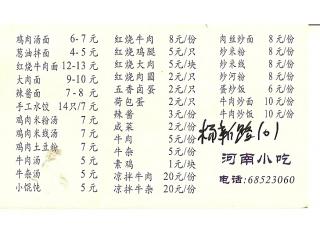 鸡肉汤面 6-7元
葱油拌面 4-5元
红烧牛肉面 12-13元
大肉面 9-10元
辣酱面 7-8元
手工水饺 14只/7元
鸡肉米粉汤 7元
鸡肉米线汤 7元
鸡肉土豆粉 7元
牛肉汤 5元
牛杂汤 5元
小馄饨 5元
红烧牛肉 8元/份
红烧鸡腿 5元/只
红烧大肉 5元/块
红烧肉圆 2元/只
五香卤蛋 2元/只
荷包蛋 2元/只
辣酱 3元/份
咸菜 2元/份
牛肉 5元/份
牛杂 5元/份
素鸡 1元/块
凉拌牛肉 20元/份
凉拌牛杂 20元/份
肉丝炒面 8元/份
炒米粉 8元/份
炒米线 8元/份
炒河粉 8元/份
蛋炒饭 6元/份
牛肉炒面 10元/份
牛肉炒饭 10元/份
杨新路101
河南小吃
电话:68523060